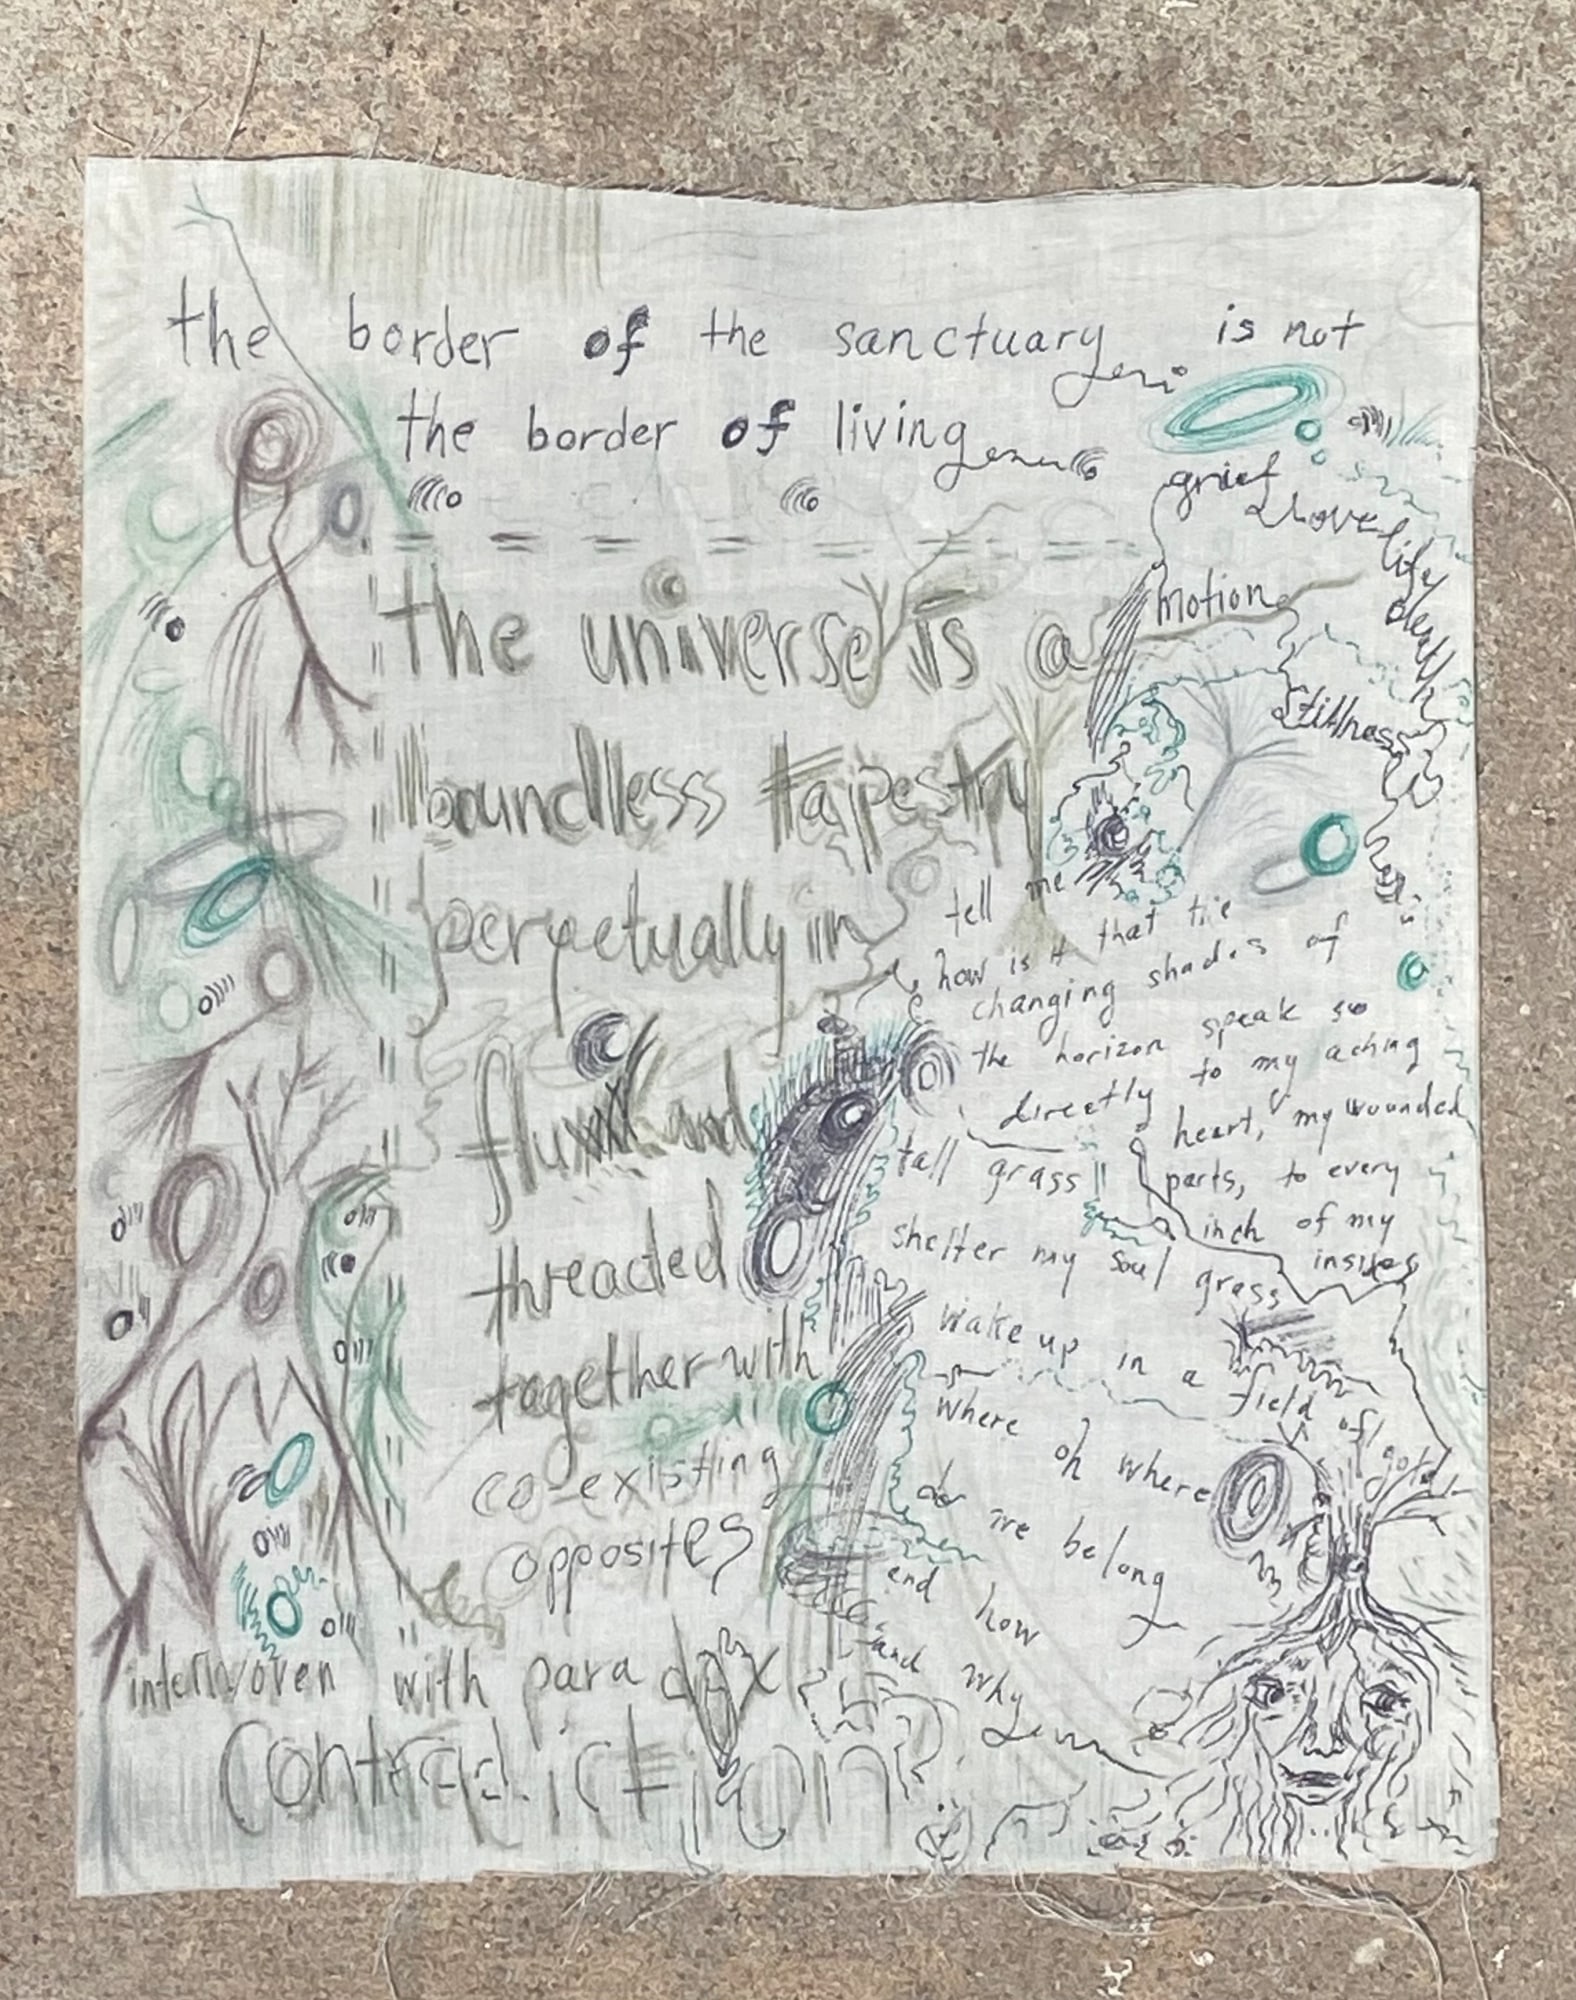 the border of the sanctuary is not
the border of living
grief
& love
life
death
motion
stillness
the universe is a
boundless tapestry
perpetually in
flux and
threaded
together with
co-existing
opposites
interwoven with paradox
contradiction
tell me
how is it that the
changing shades of
the horizon speak so
directly to my aching
heart, my wounded
parts, to every
inch of my
insides
tall grass
shelter my soul grass
wake up in a field of gold
where oh where
do we belong
and how
and why